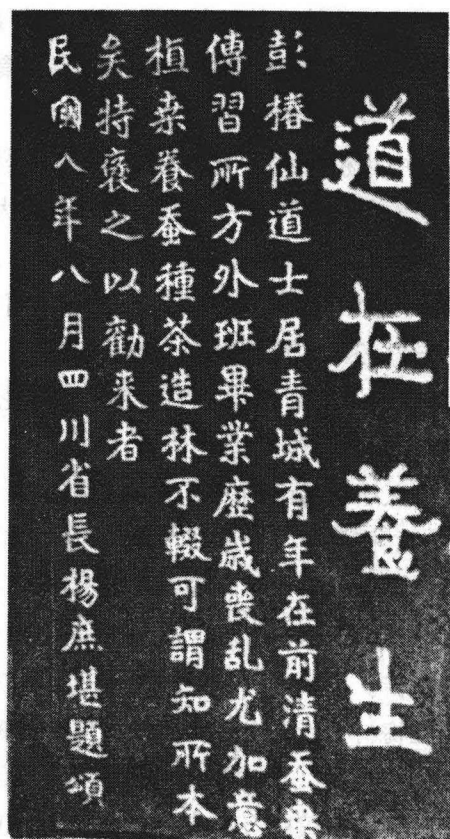 道在養生
彭椿仙道士居青城有年在前清蚕桒
傳習所方外班畢業歴歲喪乱尤加意
植桒養蚕種茶造林不輟可謂知所本
矣持褒之以勸来者
民國八年八月四川省長楊庶堪題頌